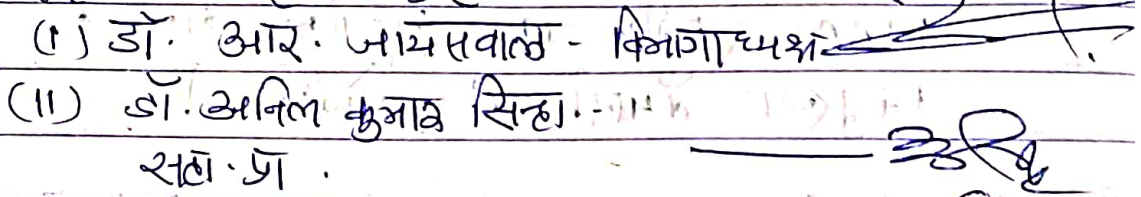 (I) डॉ. आर. जायसवाल - विभागाध्यक्ष
(II) डॉ. अनिल कुमार सिन्हा. -
सहा. प्रा.